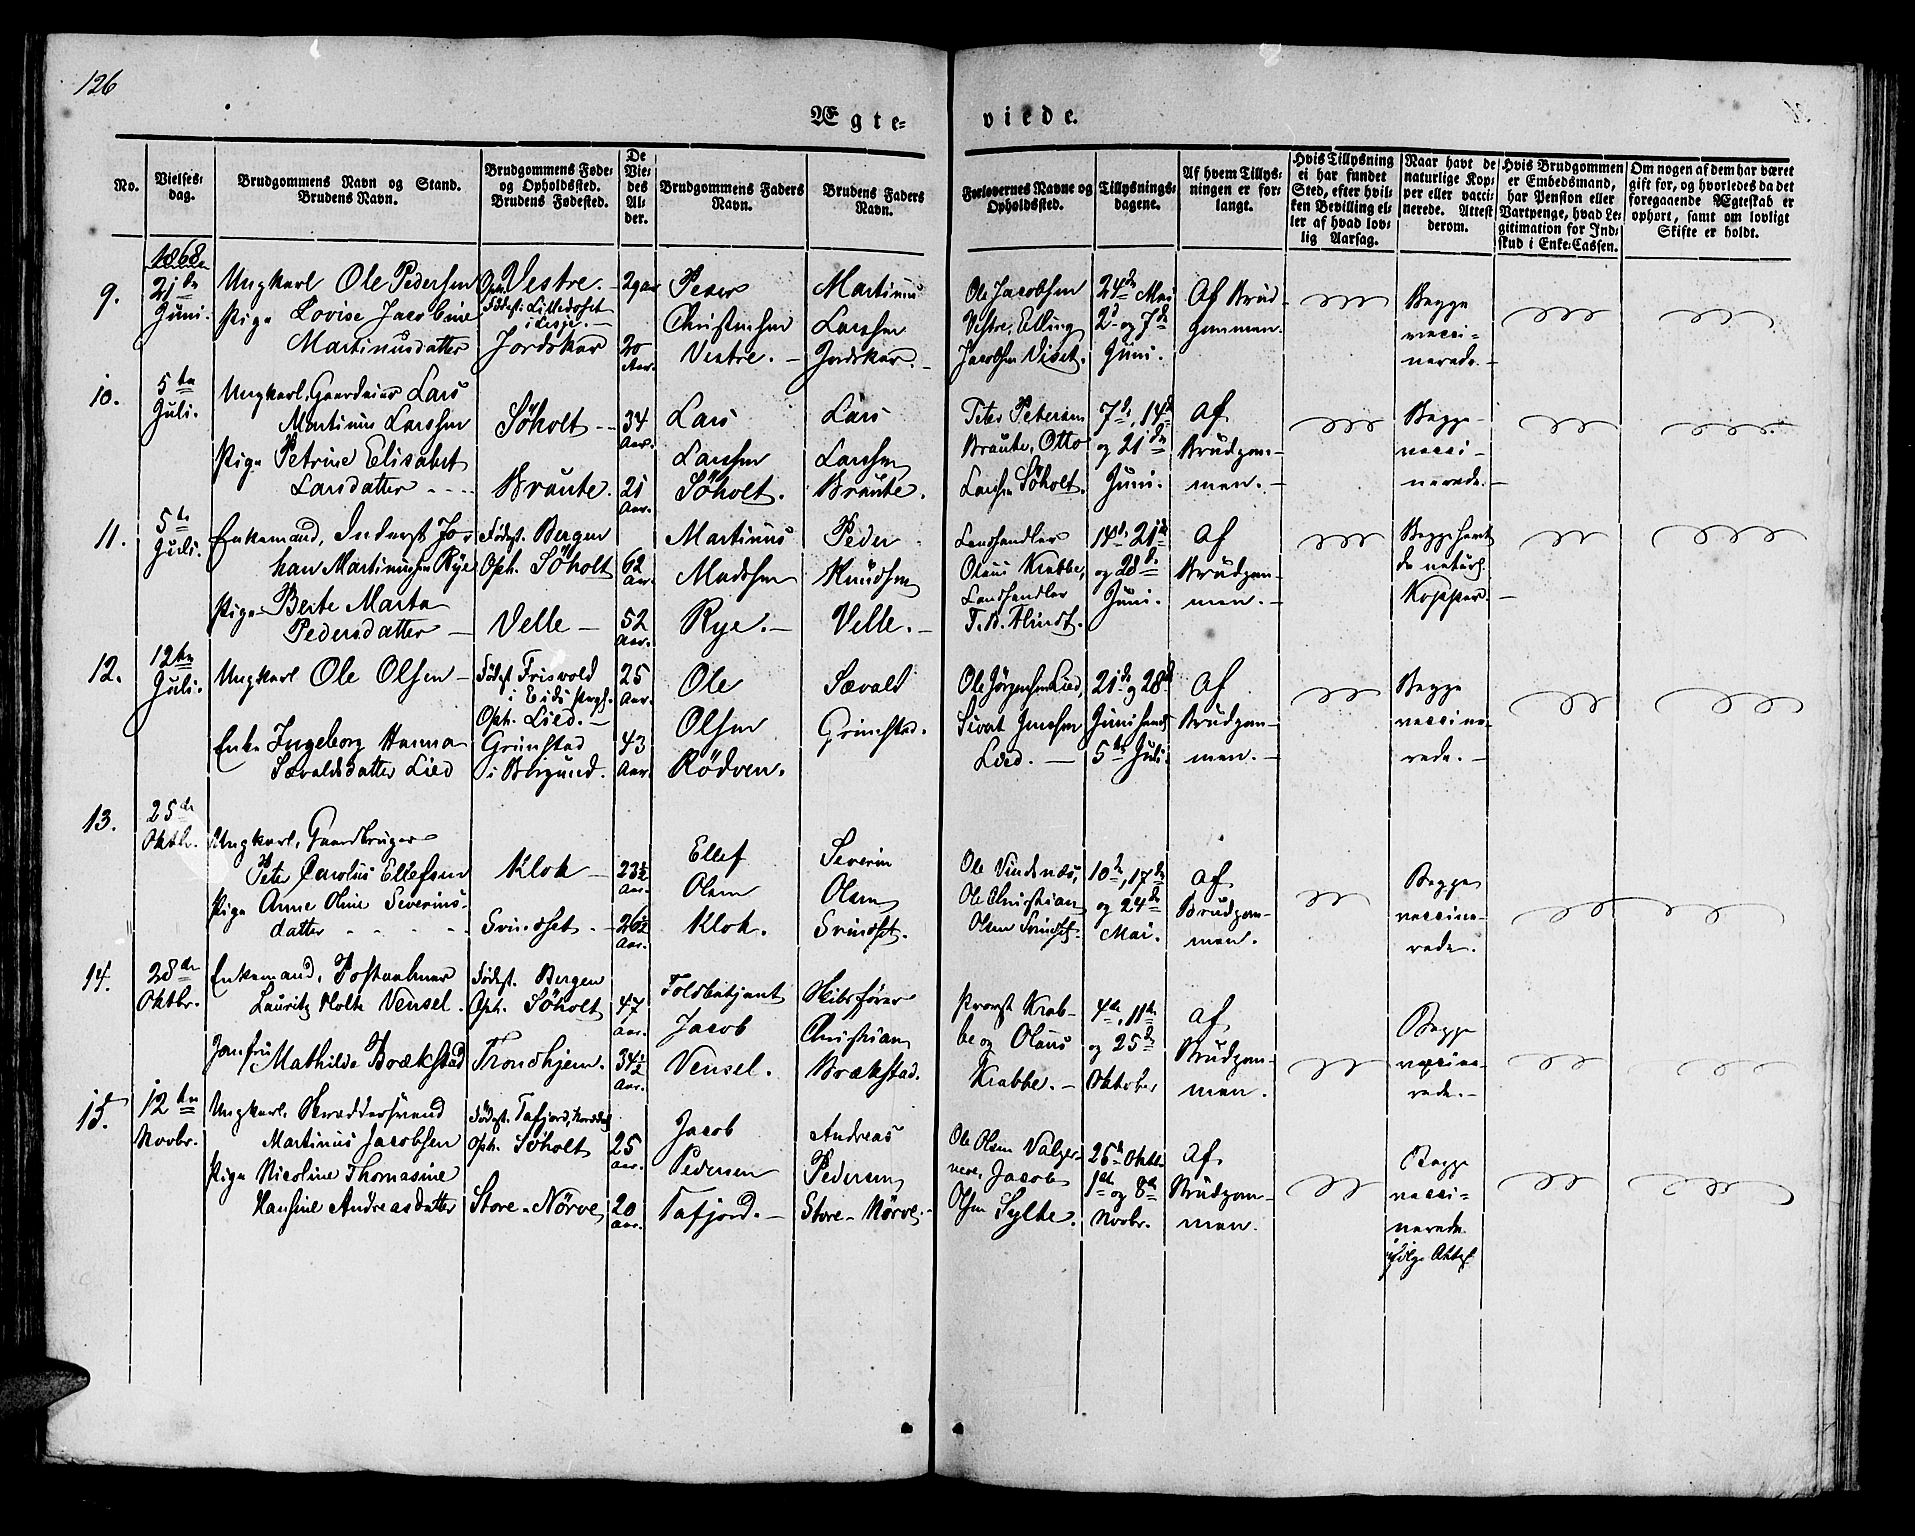 126
Ægte- viede.
No.
Vielses-
dag.
Brudgommens Navn og Stand.
Brudens Navn.
Brudgommens Føde-
og Opholdssted.
Brudens Fødested.
De
Vie-
des
Al-
der.
Brudgommens Faders
Navn.
Brudens Faders
Navn.
Forlovernes Navne og
Opholdssted.
Tillysnings-
dagene.
Af hvem Tillys-
ningen er for-
langt.
Hvis Tillysning
ei har fundet
Sted, efter hvil-
ken Bevilling el-
ler af hvad lov-
lig Aarsag.
Naar havt de
naturlige Kop-
per eller vacci-
nerede. Attest
derom.
Hvis Brudgommen
er Embedsmand,
har Pension eller
Vartpenge, hvad Le-
gitimation for Ind-
skud i Enke-Cassen.
Om nogen af dem har været
gift for, og hvorledes da det
foregaaende Ægteskab er
ophørt, samt om lovligt
Skifte er holdt.
1868
9.
21de
Juni.
Ungkarl Ole Pedersen
Pige Lovise Jacobine
Martinusdatter
Oph. Vestre.
Fødest. Lilledoset
i Lesje.
Jordskar
29 aar
20
Aar.
Peter
Christensen
Vestre.
Martinus
Larssen
Jordskar.
Ole Jacobsen
Vestre, Elling
Jacobsen Viset.
24de Mai
2d og 7de
Juni.
Af Brud-
gommen.
Begge
vacci-
nerede.
10.
5te
Juli.
Ungkarl, Gaardeier Lars
Martinus Larssen
Pige Petrine Elisabet
Larsdatter
Søholt
Braute.
34
Aar.
21
Aar.
Lars
Larssen
Søholt.
Lars
Larssen
Braute.
Peter Petersen
Braute, Otto
Larssen Søholt.
7de, 14de
og 21de
Juni.
Af
Brudgom-
men.
Begge
vacci-
nerede.
11.
5te
Juli.
Enkemand, Inderst Jo-
han Martinussen Rye
Pige Berte Marta
Pedersdatter
Fødest. Bergen
Oph. Søholt
Velle
62
Aar.
52
Aar.
Martinus
Madssen
Rye.
Peder
Knudsen
Velle.
Landhandler
Olaus Krabbe,
Landhandler
T. B. Flindt.
14de, 21de
og 28de
Juni.
Af
Brudgom-
men.
Begge havt
de naturl.
Kopper.
12.
12te
Juli.
Ungkarl Ole Olsen
Enke Ingeborg Hanna
Sævaldsdatter Lied
Fødest. Frisvold
i Eids Prgj.
Oph. Lied.
Grimstad
i Borgund.
25
Aar.
43
Aar.
Ole
Olsen
Rødven.
Sævald
Grimstad.
Ole Jørgensen Lied,
Sivat Jenssen
Lied.
21de og 28de
Juni samt
5te Juli.
Af
Brudgom-
men.
Begge
vaccine-
rede.
13.
25de
Oktbr.
Ungkarl, Gaardbruger
Peter Carolus Ellefsen
Pige Anne Oline Severins-
datter
Klok
Svindset
23½
Aar.
26½
Aar.
Ellef
Olsen
Klok.
Severin
Olsen
Svindset.
Ole Vindsnæs,
Ole Christian
Olsen Svindset.
10de, 17de
og 24de
Mai.
Af
Brudgom-
men.
Begge
vaccine-
rede.
14.
28de
Oktbr.
Enkemand, Postaabner
Lauritz Holtz Vensel.
Jomfru Mathilde Brækstad
Fødest. Bergen
Oph. Søholt
Trondhjem.
47
Aar.
34½
Aar.
Toldbetjent
Jacob
Vensel.
Skibsfører
Christian
Brækstad.
Provst Krab-
be og Olaus
Krabbe.
4de, 11te
og 25de
Oktober
Af
Brudgom-
men.
Begge
vaccine-
rede.
15.
12te
Novbr.
Ungkarl, Skræddersvend
Martinus Jacobsen
Pige Nicoline Thomasine
Hansine Andreasdatter
Fødest. Tafjord, Norddal
Oph. Søholt
Store-Nørve
25
Aar.
20
Aar.
Jacob
Pedersen
Tafjord.
Andreas
Pedersen
Store-Nørve.
Ole Olsen Valger-
mere, Jacob
Olsen Sylte.
25de Oktbr.
1ste og 8de
Novbr.
Af
Brudgom-
men.
Begge
vacci-
nerede
ifølge Attest